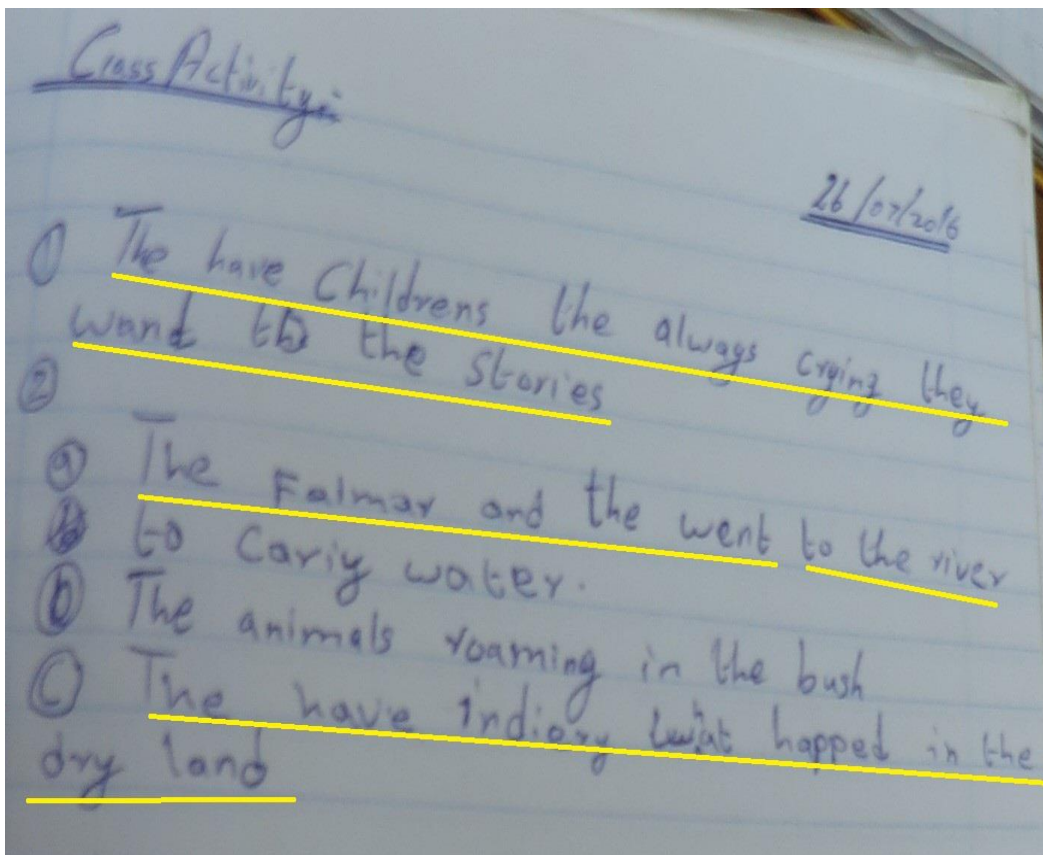 Class Activity:-
26/07/2016
① The have Childrens the always crying they
wand to the Stories
②
ⓐ The Falmar and the went to the river
ⓑ to Cariy water.
ⓑ The animals roaming in the bush
ⓒ The have indiary what happed in the
dry land